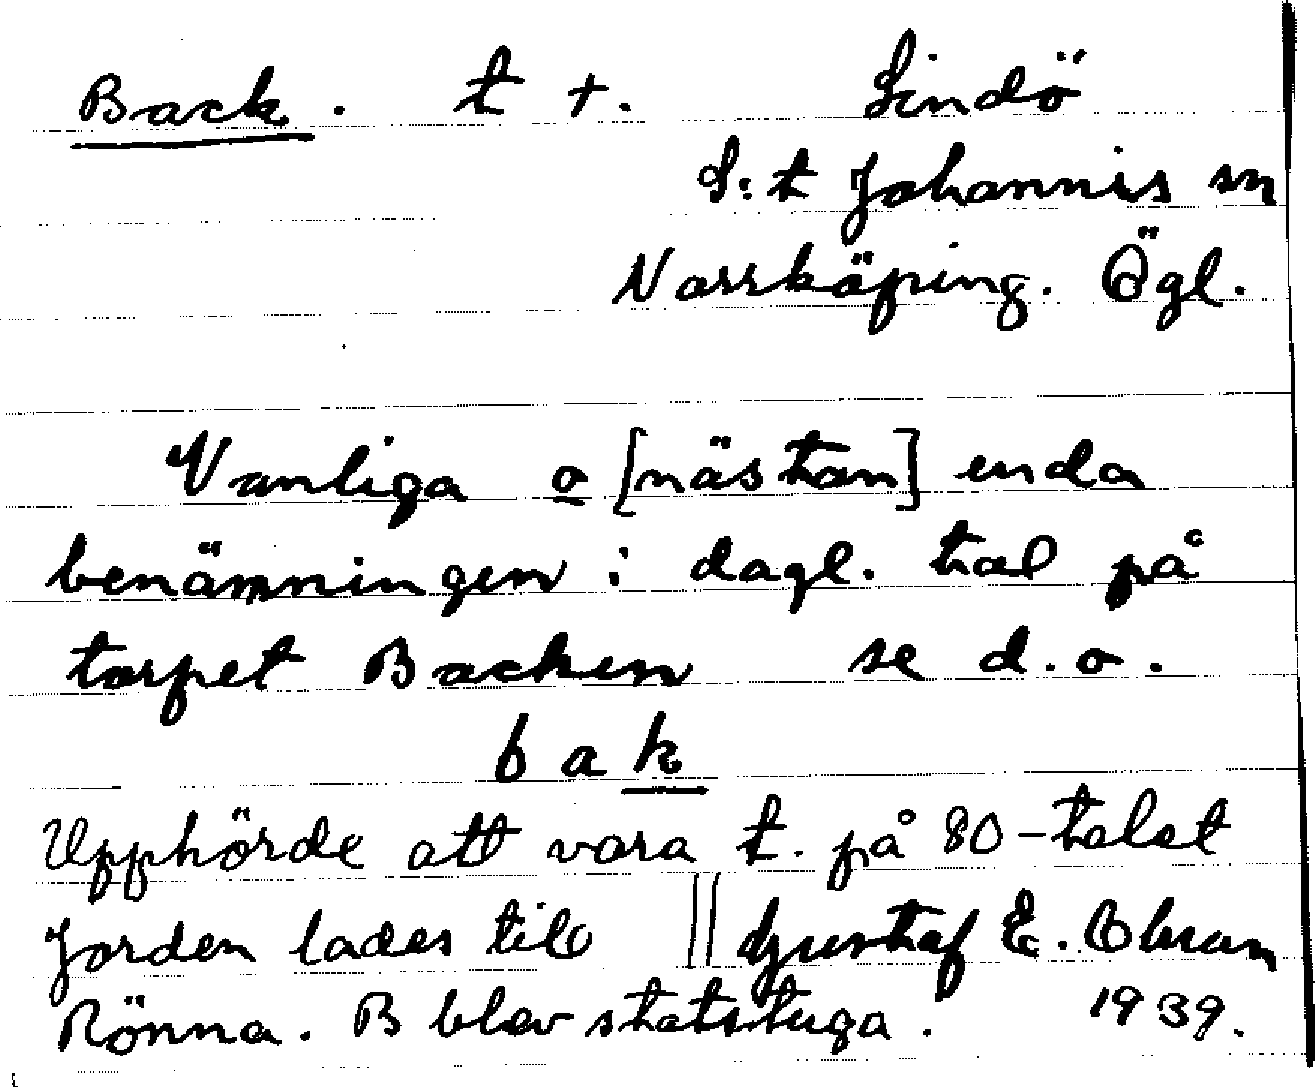 Back. t +. Lindö
S:t Johannis sn
Norrköping. Ögl.
Vanliga o [nästan] enda
benämningen i dagl. tal på
torpet Backen se d.o.
bak
Upphörde att vara t. på 80-talet
Jorden lades till || Gustaf E. Olsson
Rönna. B blev statstuga. 1939.